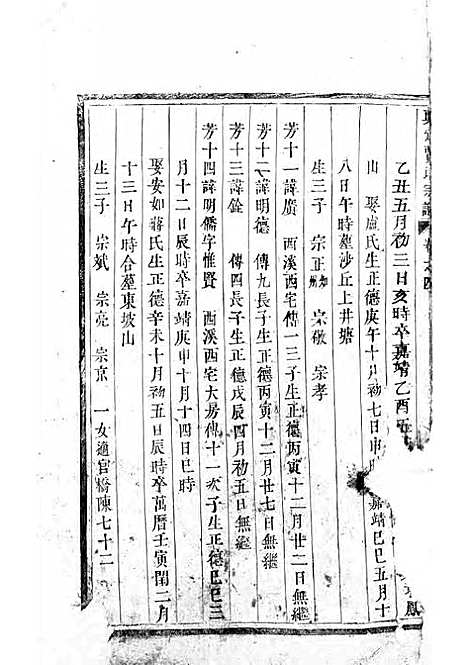 乙丑五月初三日亥時卒嘉靖乙酉五
山 娶盧氏生正德庚午十月初七日申時 嘉靖巳巳五月十
八日午時墓沙丘上井塘
生三子 宗正 宗敬 宗孝
芳十一諱廣 西溪西宅傳一三子生正德丙寅十二月廿二日無繼
芳十二諱明德 傳九長子生正德丙寅十二月廿七日無繼
芳十三諱銓 傳四長子生正德戊辰四月初五日無繼
芳十四諱明儒字惟賢 西溪西宅大房傳十一次子生正德巳巳三
月十二日辰時卒嘉靖庚申十月十四日巳時
娶安如蔣氏生正德辛未十月初五日辰時卒萬曆壬寅閏二月
十三日午時合墓東坡山
生三子 宗斌 宗亮 宗京 一女適官橋陳七十二